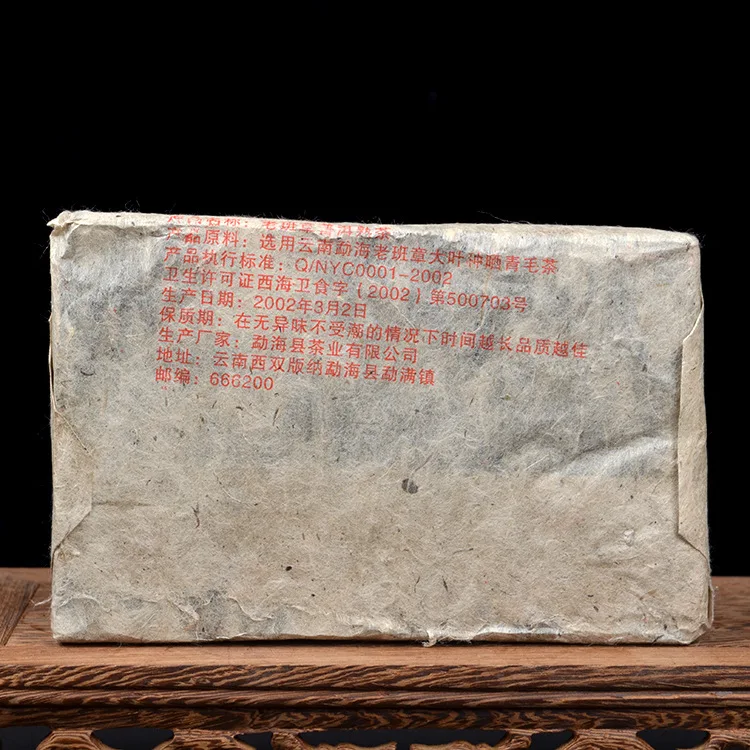 产品名称：老班章普洱熟茶
产品原料：选用云南勐海老班章大叶种晒青毛茶
产品执行标准：Q/NYC0001-2002
卫生许可证西海卫食字（2002）第500703号
生产日期：2002年3月2日
保质期：在无异味不受潮的情况下时间越长品质越佳
生产厂家：勐海县茶业有限公司
地址：云南西双版纳勐海县勐满镇
邮编：666200